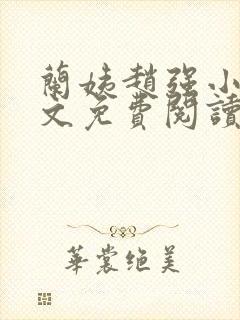 蘭姨趙强小
文免費閱讀
華裳绝美